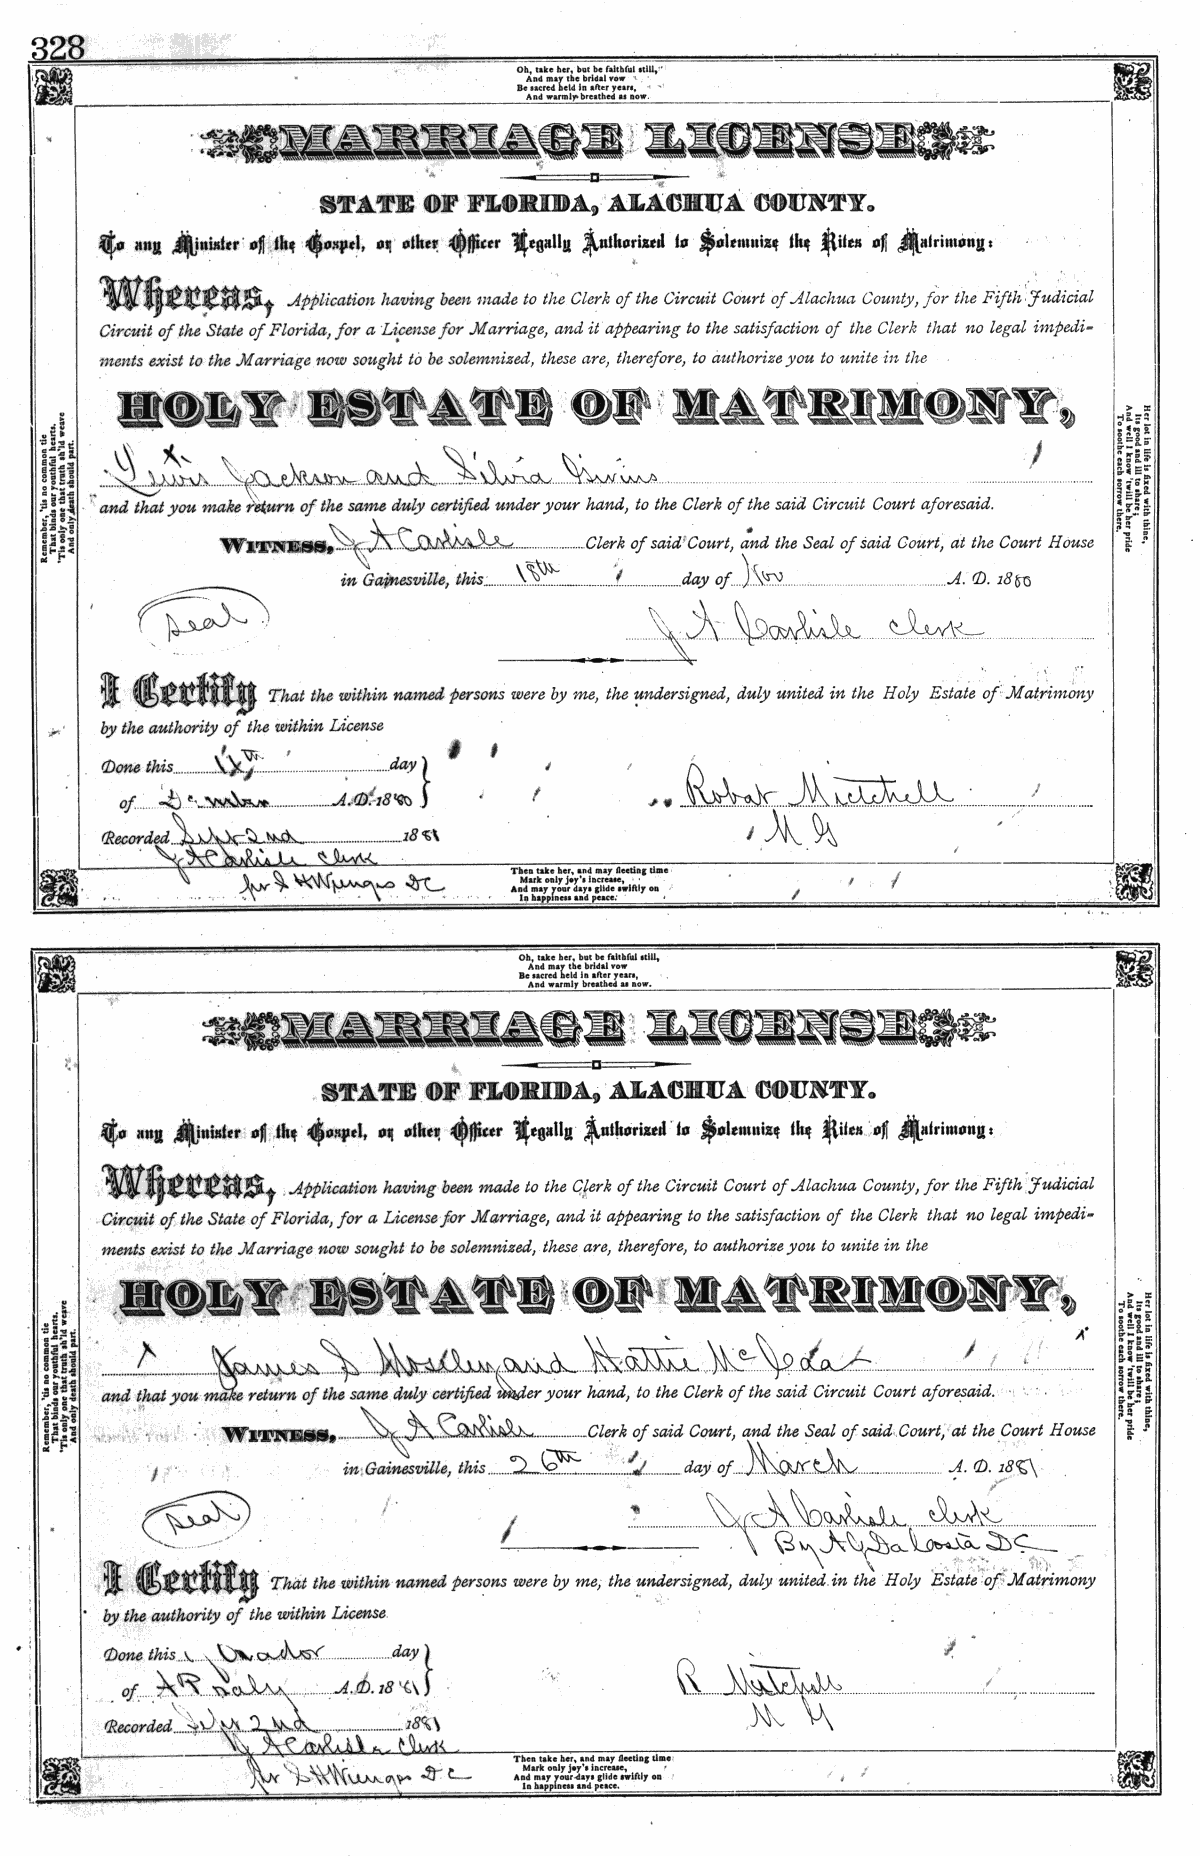 328
Oh, take her, but be faithful still,
And may the bridal vow
Be sacred held in after years,
And warmly breathed as now.
MARRIAGE LICENSE
STATE OF FLORIDA, ALACHUA COUNTY.
To any Minister of the Gospel, or other Officer Legally Authorized to Solemnize the Rites of Matrimony:
Whereas, Application having been made to the Clerk of the Circuit Court of Alachua County, for the Fifth Judicial
Circuit of the State of Florida, for a License for Marriage, and it appearing to the satisfaction of the Clerk that no legal impedi-
ments exist to the Marriage now sought to be solemnized, these are, therefore, to authorize you to unite in the
HOLY ESTATE OF MATRIMONY,
Lewis Jackson and Silvia Givins
and that you make return of the same duly certified under your hand, to the Clerk of the said Circuit Court aforesaid.
WITNESS, J A Carlisle Clerk of said Court, and the Seal of said Court, at the Court House
in Gainesville, this 18th day of Nov A. D. 1880
Seal
J A Carlisle Clerk
I Certify That the within named persons were by me, the undersigned, duly united in the Holy Estate of Matrimony
by the authority of the within License
Done this day
of A.D. 1880
Robat Mictchell
M G
Recorded Sept 2nd 1881
J A Carlisle Clerk
pr S H Wienges DC
Remember, 'tis no common tie
That binds our youthful hearts,
'Tis only one that truth sh'ld weave
And only death should part.
Her lot in life is fixed with thine,
Its good and ill to share;
And well I know 'twill be her pride
To soothe each sorrow there.
Then take her, and may fleeting time
Mark only joy's increase,
And may your days glide swiftly on
In happiness and peace.
Oh, take her, but be faithful still,
And may the bridal vow
Be sacred held in after years,
And warmly breathed as now.
MARRIAGE LICENSE
STATE OF FLORIDA, ALACHUA COUNTY.
To any Minister of the Gospel, or other Officer Legally Authorized to Solemnize the Rites of Matrimony:
Whereas, Application having been made to the Clerk of the Circuit Court of Alachua County, for the Fifth Judicial
Circuit of the State of Florida, for a License for Marriage, and it appearing to the satisfaction of the Clerk that no legal impedi-
ments exist to the Marriage now sought to be solemnized, these are, therefore, to authorize you to unite in the
HOLY ESTATE OF MATRIMONY,
James S Moseley and Hattie
and that you make return of the same duly certified under your hand, to the Clerk of the said Circuit Court aforesaid.
WITNESS, J A Carlisle Clerk of said Court, and the Seal of said Court, at the Court House
in Gainesville, this 26th day of March A. D. 1881
Seal
J A Carlisle Clerk
By A G DaCosta DC
I Certify That the within named persons were by me, the undersigned, duly united in the Holy Estate of Matrimony
by the authority of the within License
Done this day
of A.D. 1881
R Mitchell
M G
Recorded Sept 2nd 1881
J A Carlisle Clerk
pr S H Wienges DC
Remember, 'tis no common tie
That binds our youthful hearts,
'Tis only one that truth sh'ld weave
And only death should part.
Her lot in life is fixed with thine,
Its good and ill to share;
And well I know 'twill be her pride
To soothe each sorrow there.
Then take her, and may fleeting time
Mark only joy's increase,
And may your days glide swiftly on
In happiness and peace.